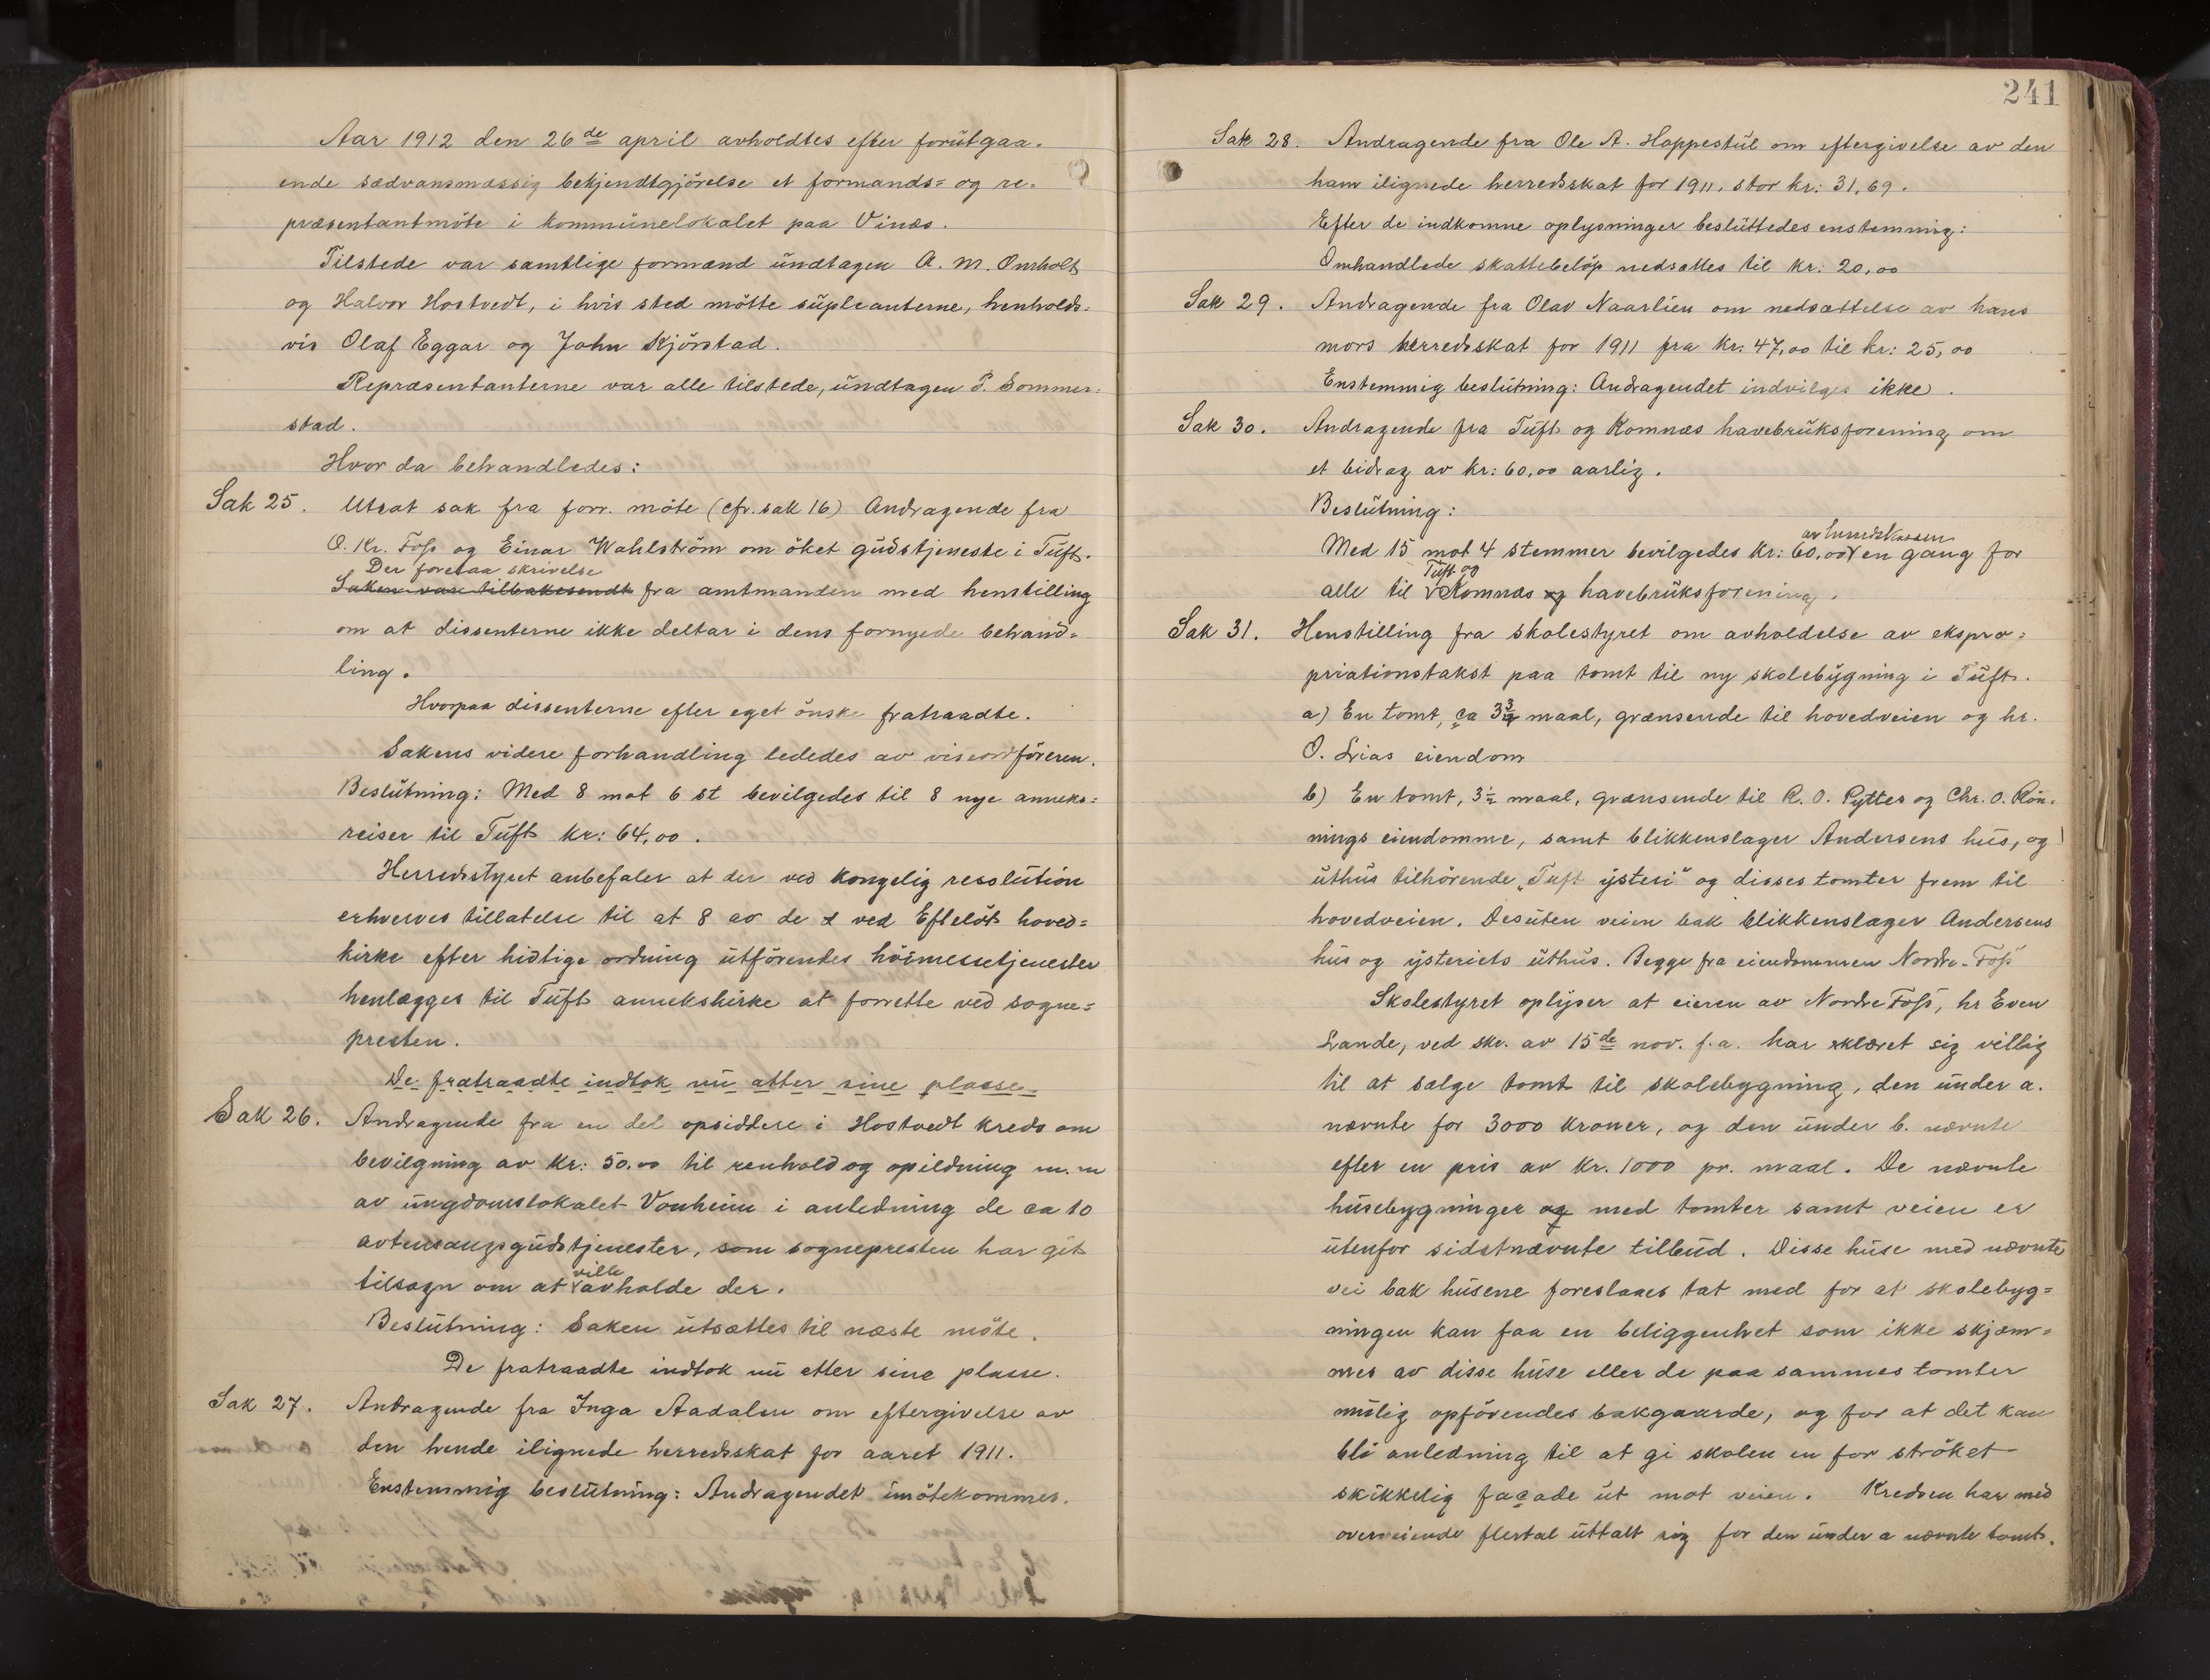 Aar 1912 den 26de april avholdtes efter forutgaa-
ende sædvansmæssig bekjendtgjörelse et formands= og re-
præsentantmöte i kommunelokalet paa Vinæs.
Tilstede var samtlige formænd undtagen A. M. Omholt
og Halvor Hostvedt, i hvis sted mötte supleanterne, henholds=
vis Olaf Eggar og John Kjörstad.
Repræsentanterne var alle tilstede, undtagen P. Sommer=
stad.
Hvor da behandledes:
Sak 25. Utsat sak fra forr. möte (cfr. sak 16) Andragende fra
O. Kr. Foss og Einar Wahlström om öket gudstjeneste i Tuft.
Der forelaa skrivelse
Saken var tilbakesendt fra amtmanden med henstilling
om at dissenterne ikke deltar i dens fornyede behand=
ling.
Hvorpaa dissenterne efter eget önske fratraadte.
Sakens videre forhandling lededes av viseordföreren.
Beslutning: Med 8 mot 6 st bevilgedes til 8 nye anneks=
reiser til Tuft kr: 64,00.
Herredsstyret anbefaler at der ved kongelig resolution
erhverves tillatelse til at 8 av de ved Efteløt hoved=
kirke efter hidtige ordning utförendes höimessetjenester
henlægges til Tuft annekskirke at forrette ved sogne=
presten.
De fratraadte indtok nu atter sine plasse.
Sak 26. Andragende fra en del opsiddere i Hostvedt kreds om
bevilgning av kr: 50.00 til renhold og opildning m.m
av ungdomslokalet Vonheim i anledning de ca 10
avtensangsgudstjenester, som sognepresten har git
ville
tilsagn om at avholde der.
Beslutning: Saken utsættes til næste möte.
De fratraadte indtok nu atter sine plasse.
Sak 27. Andragende fra Inga Aadalen om eftergivelse av
den hende ilignede herredsskat for aaret 1911.
Enstemmig beslutning: Andragendet imötekommes.
241
Sak 28. Andragende fra Ole A. Hoppestul om eftergivelse av den
ham ilignede herredsskat for 1911, stor kr: 31,69.
Efter de indkomne oplysninger besluttedes enstemmig:
Omhandlede skattebelöp nedsættes til kr: 20,00
Sak 29. Andragende fra Olav Naarlien om nedsættelse av hans
mors herredsskat for 1911 fra kr: 47,00 til kr: 25,00
Enstemmig beslutning: Andragendet indvilges ikke.
Sak 30. Andragende fra Tuft og Komnæs havebruksforening om
et bidrag av kr: 60,00 aarlig.
Beslutning:
av herredskassen
Med 15 mot 4 stemmer bevilgedes kr: 60,00 en gang for
Tuft og
alle til Komnæs og havebruksforening.
Sak 31. Henstilling fra skolestyret om avholdelse av ekspro=
priationstakst paa tomt til ny skolebygning i Tuft.
a) En tomt, ca 3 3/4 maal, grænsende til hovedveien og hr.
O. Lias eiendom
b) En tomt, 3 1/2 maal, grænsende til R. O. Pyttes og Chr. O. Rön-
nings eiendomme, samt blikkenslager Andersens hus, og
uthus tilhörende „Tuft ysteri" og disses tomter frem til
hovedveien. Desuten veien bak blikkenslager Andersens
hus og ysteriets uthus. Begge fra eiendommen Nordre-Foss
Skolestyret oplyser at eieren av Nordre Foss, hr Even
Lande, ved skr. av 15de nov. f.a. har erklæret sig villig
til at sælge tomt til skolebygning, den under a.
nævnte for 3000 kroner, og den under b. nævnte
efter en pris av kr. 1000 pr. maal. De nævnte
husebygninger og med tomter samt veien er
utenfor sidstnævnte tilbud. Disse huse med nævnte
vei bak husene foreslaaes tat med for at skolebyg=
ningen kan faa en beliggenhet som ikke skjæm=
mes av disse huse eller de paa sammes tomter
mulig opförendes bakgaarde, og for at det kan
bli anledning til at gi skolen en for ströket
skikkelig façade ut mot veien. Kredsen har med
overveiende flertal uttalt sig for den under a nævnte tomt.